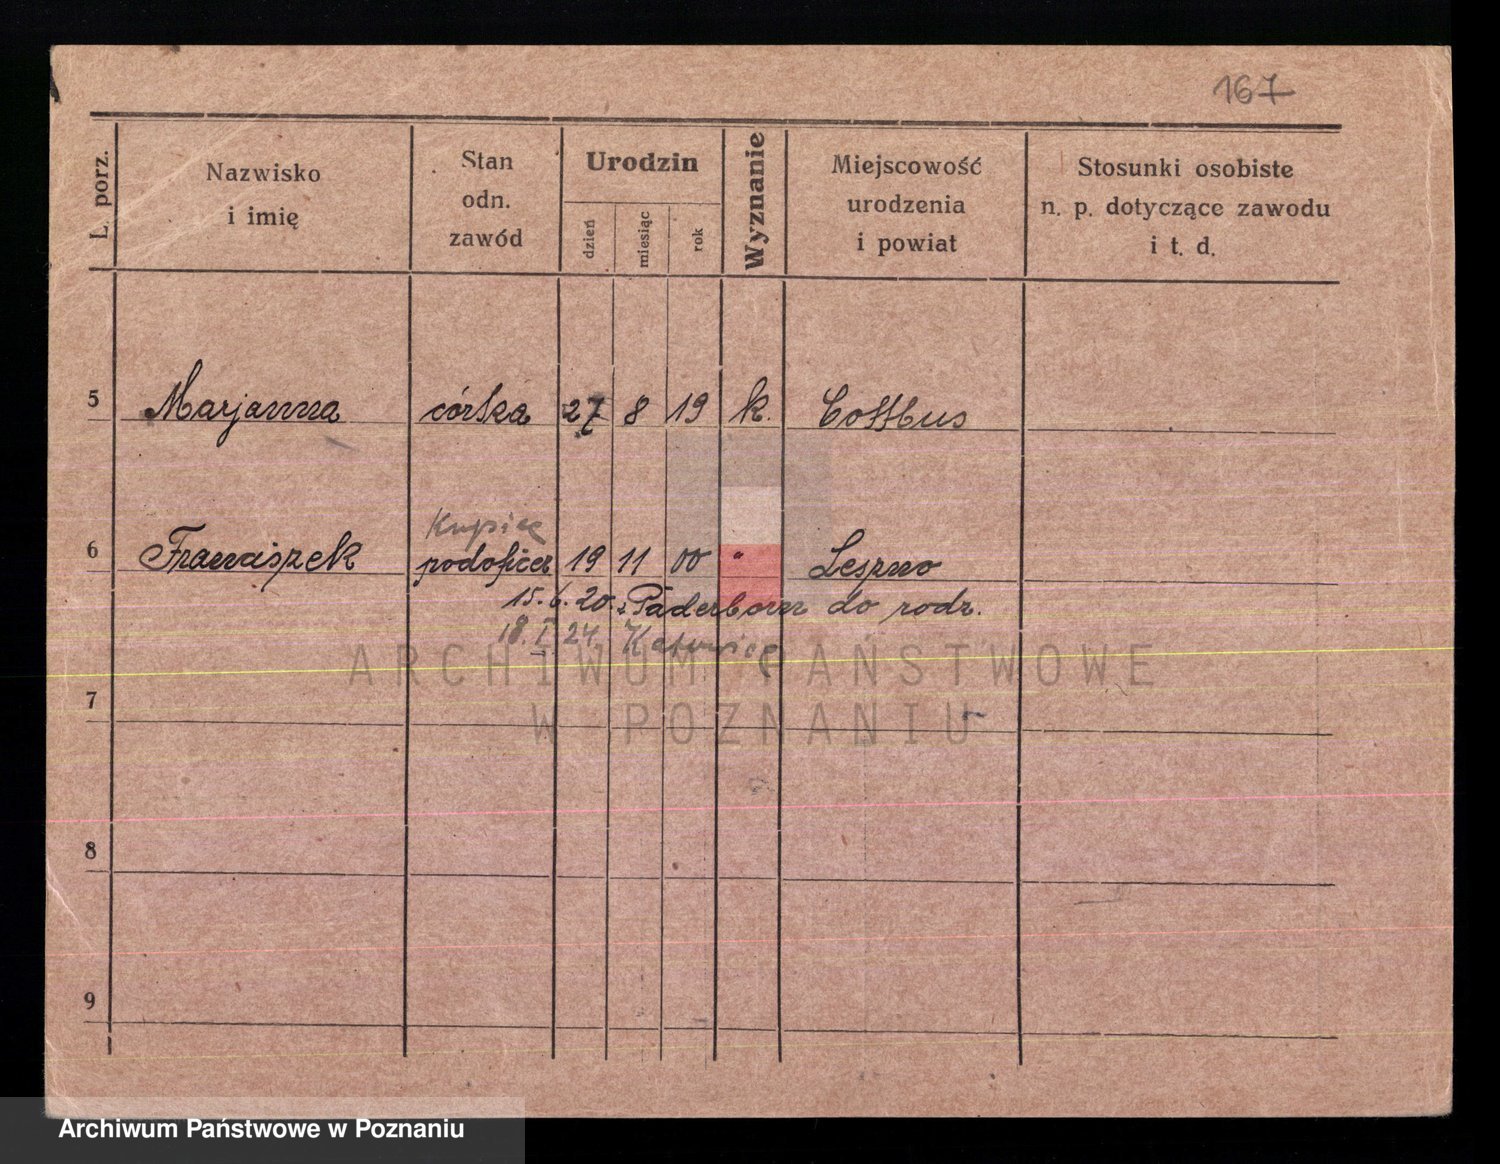 167
L. porz.
Nazwisko
i imię
Stan
odn.
zawód
Urodzin
dzień
miesiąc
rok
Wyznanie
Miejscowość
urodzenia
i powiat
Stosunki osobiste
n. p. dotyczące zawodu
i t. d.
5 Marjanna córka 27 8 19 k. Cottbus
Kupiec
6 Franciszek podoficer 19 11 00 " Leszno
15.6.20. z Paderborn do rodz.
18. I. 24. Katowice
ARCHIWUM PAŃSTWOWE
7
W POZNANIU
8
9
Archiwum Państwowe w Poznaniu